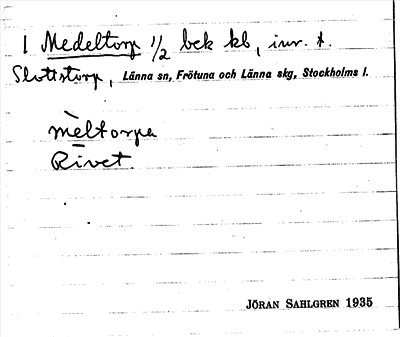 1 Medeltorp 1/2 bek kb, inr. t.
Slottstorp, Länna sn, Frötuna och Länna skg, Stockholms l.
mèltorpa
Rivet.
JÖRAN SAHLGREN 1935